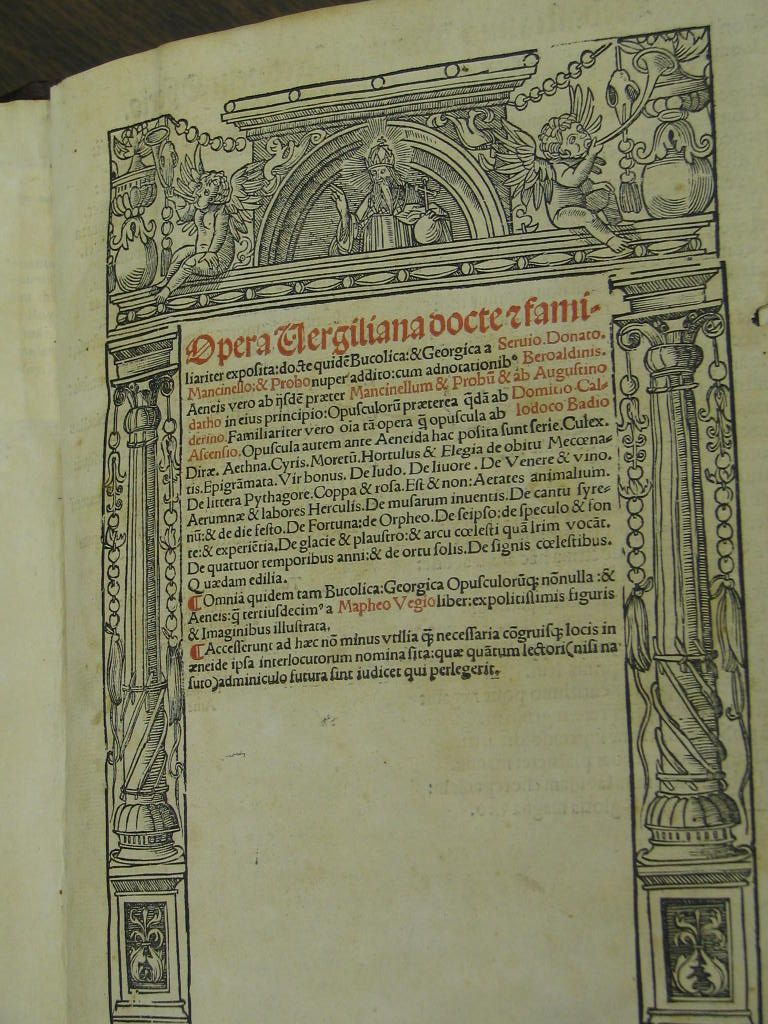 Opera Vergiliana docte ⁊ fami-
liariter exposita: docte quidẽ Bucolica: & Georgica a Seruio. Donato.
Mancinello: & Probo nuper addito: cum adnotationibꝰ Beroaldinis.
Aeneis vero ab ijsdẽ præter Mancinellum & Probũ & ab Augustino
datho in eius principio: Opusculorũ præterea q̃dã ab Domitio Cal-
derino. Familiariter vero oĩa tã opera q̃ opuscula ab Iodoco Badio
Ascensio. Opuscula autem ante Aeneida hac posita sunt serie. Culex.
Diræ. Aethna. Cyris. Moretũ. Hortulus & Elegia de obitu Mecœna-
tis. Epigrãmata. Vir bonus. De ludo. De liuore. De Venere & vino.
De littera Pythagore. Coppa & rosa. Est & non: Aetates animalium.
Aerumnæ & labores Herculis. De musarum inuentis. De cantu syre-
nũ: & de die festo. De Fortuna: de Orpheo. De seipso: de speculo & fon
te: & experiẽtia. De glacie & plaustro: & arcu cœlesti quã Irim vocãt.
De quattuor temporibus anni: & de ortu solis. De signis cœlestibus.
Quædam edilia.
¶ Omnia quidem tam Bucolica: Georgica Opusculorũq; nõnulla: &
Aeneis: q̃ tertiusdecimꝰ a Mapheo Vegio liber: expolitissimis figuris
& Imaginibus illustrata.
¶ Accesserunt ad hæc nõ minus vtilia q̃ necessaria cõgruisq; locis in
æneide ipsa interlocutorum nomina sita: quæ quãtum lectori (nisi na
suto) adminiculo futura sint iudicet qui perlegerit.